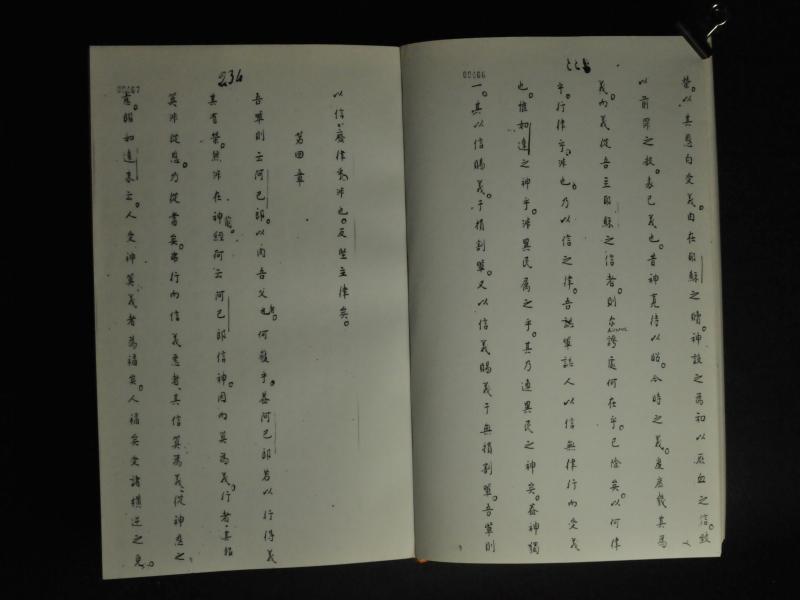 00466
榮。以其恩白受義。由在耶穌之贖。神設之為和以厥血之信。致
以前罪之赦。表己義也。昔神寬待以昭。今時之義。度庶幾其為
義。而義從吾主耶穌之信者。則尔誇處何在乎。已除矣。以何律
乎。行律乎。非也。乃以信之律。吾輩話人以信無律行而受義
也。惟如達之神乎。非異民属之乎。其乃異民之神矣。葢神獨
一。其以信賜義于損割輩。又以信義賜義于無損割輩。吾輩則
00467
234
以信廢律乎。非也。反堅立律矣。
第四章
吾輩則云阿巴郎。以肉吾父者。何獲乎。葢阿巴郎若以行得義
其有榮。然非在神前。經何云阿巴郎信神。因而筭為義。行者其
筭非從恩。乃從當矣。弗行而信義惡者。其信筭為義。從神恩之
意。照如達未云。人受神筭義者為福矣。人福矣受諸橫逆之免。